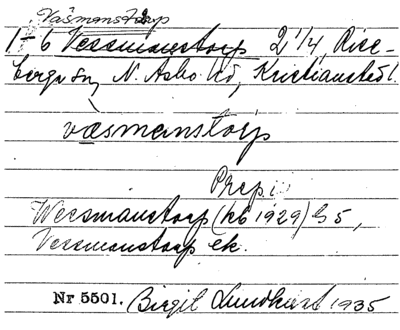 Väsmanstorp
1-6 Vessmanstorp 2 1/4, Risebergs sn, N. Åsbo hd, Kristianstads l.
väsmanstorp
Prep. i
Wessmanstorp (kb 1929) G5,
Vessmanstorp ek.
Nr 5501. Birgit Lundkvist 1935